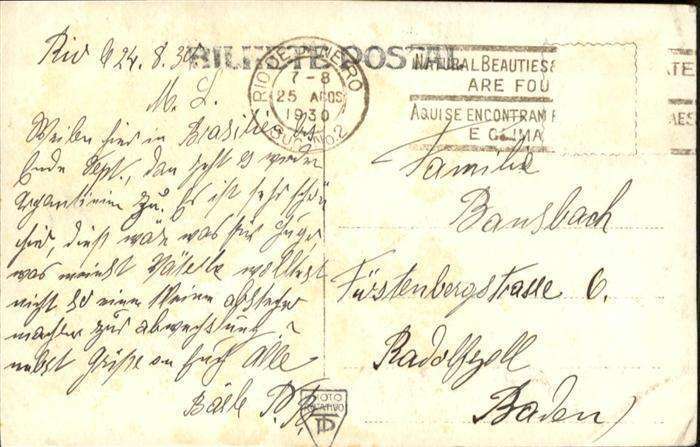 Rio 24.8.30
BILHETE POSTAL
RIO DE JANEIRO
7-8
25 AGOS
1930
NATURAL BEAUTIES
ARE FOU
AQUI SE ENCONTRAM
E CLIMA
M. L.
Weilen hier in Brasilien bis
Ende Sept, dan geht es wieder
Argentinien zu. Es ist sehr schön
hier, dies wäre was für
was meinst Väterle wolltest
nicht so einen kleinen abstecher
machen zur abwechslung?
nebst Grüße an Euch Alle
Familie
Bansbach
Fürstenbergstrasse 6.
Radolfzell
Baden
FOTO